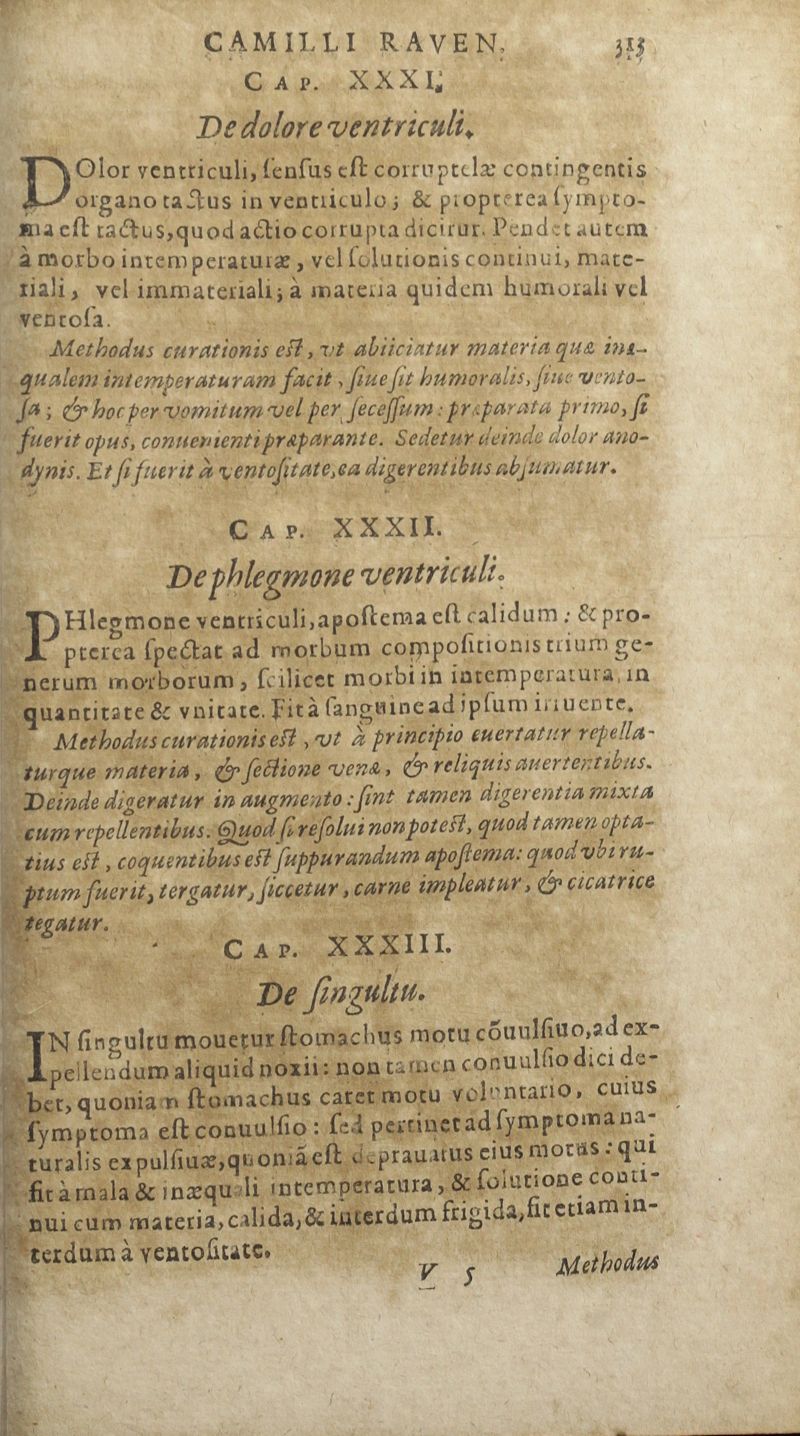 CAMILLI RAVEN. 313
CAP. XXXI.
De dolore ventriculi.
DOlor ventriculi, ſenſus eſt corruptelæ contingentis
organo tactus in ventriculo; & propterea ſympto-
ma eſt tactus, quod actio corrupta dicitur. Pendet autem
à morbo intemperaturæ, vel ſolutionis continui, mate-
riali, vel immateriali; à materia quidem humorali vel
ventoſa.
Methodus curationis eſt, vt abiiciatur materia quæ inæ-
qualem intemperaturam facit, ſiue ſit humoralis, ſiue vento-
ſa; & hoc per vomitum vel per ſeceſſum: præparata primo, ſi
fuerit opus, conuenienti præparante. Sedetur deinde dolor ano-
dynis. Et ſi fuerit à ventoſitate, ea digerentibus abſumatur.
CAP. XXXII.
De phlegmone ventriculi.
PHlegmone ventriculi, apoſtema eſt calidum: & pro-
pterea ſpectat ad morbum compoſitionis trium ge-
nerum morborum, ſcilicet morbi in intemperatura, in
quantitate & vnitate. Fit à ſanguine ad ipſum inuente.
Methodus curationis eſt, vt à principio euertatur repella-
turque materia, & ſectione venæ, & reliquis auertentibus.
Deinde digeratur in augmento: ſint tamen digerentia mixta
cum repellentibus. Quod ſi reſolui non poteſt, quod tamen opta-
tius eſt, coquentibus eſt ſuppurandum apoſtema: quod vbi ru-
ptum fuerit, tergatur, ſiccetur, carne impleatur, & cicatrice
tegatur.
CAP. XXXIII.
De ſingultu.
IN ſingultu mouetur ſtomachus motu cõuulſiuo, ad ex-
pellendum aliquid noxii: non tamen conuulſio dici de-
bet, quoniam ſtomachus caret motu voluntario, cuius
ſymptoma eſt conuulſio: ſed pertinet ad ſymptoma na-
turalis expulſiuæ, quoniã eſt deprauatus eius motus: qui
fit à mala & inæquali intemperatura, & ſolutione conti-
nui cum materia, calida, & interdum frigida, fit etiam in-
terdum à ventoſitate.
V 5 Methodus